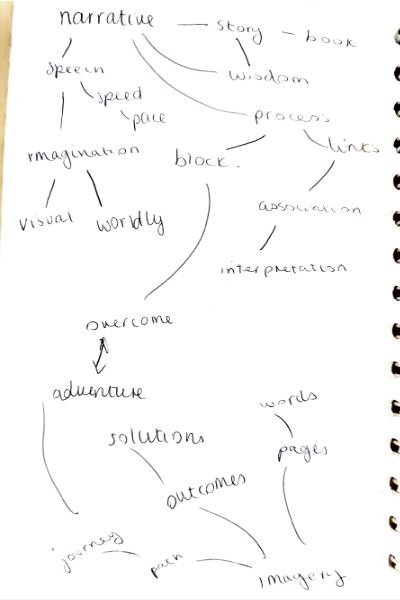 narrative — story — book
speech
wisdom
speed
pace
process
links
imagination
block.
visual
worldly
association
interpretation
overcome
adventure
words
solutions
pages
outcomes
journey
path
imagery